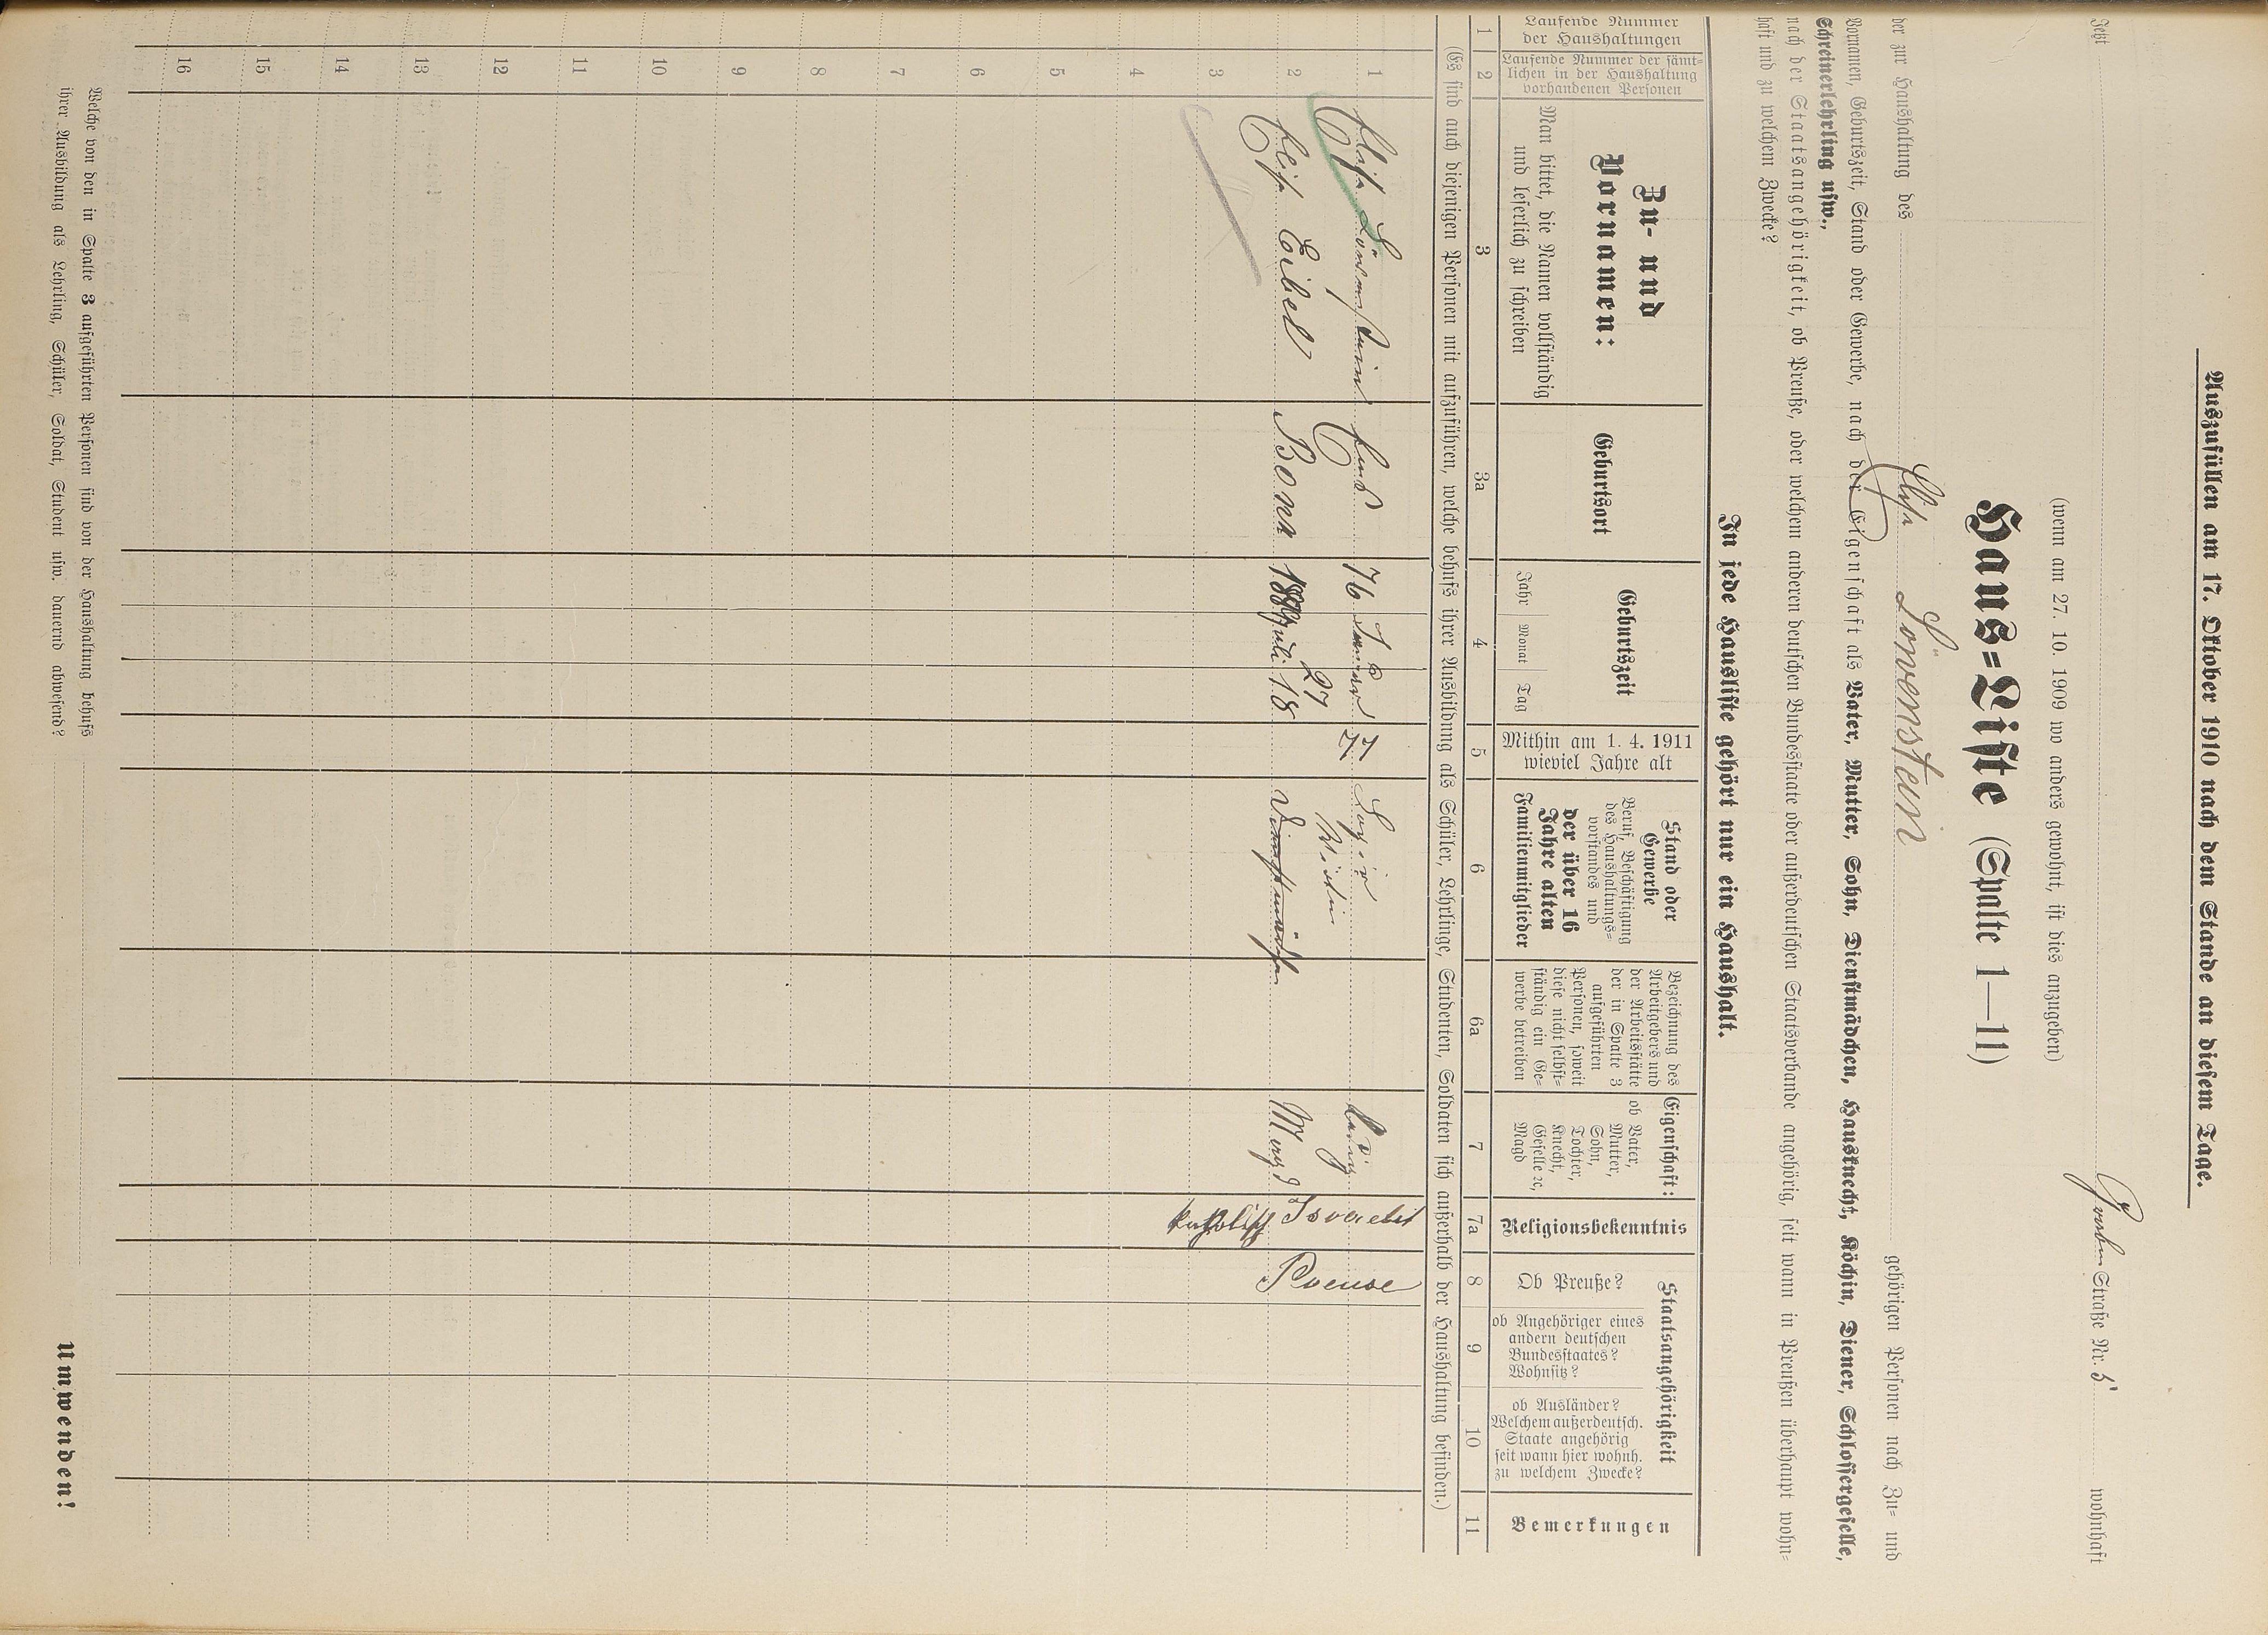 Auszufüllen am 17. Oktober 1910 nach dem Stande an diesem Tage.
Jetzt Straße Nr. 5 wohnhaft
(wenn am 27. 10. 1909 wo anders gewohnt, ist dies anzugeben)
Haus=Liste (Spalte 1—11)
der zur Haushaltung des Löwenstein gehörigen Personen nach Zu= und
Vornamen, Geburtszeit, Stand oder Gewerbe, nach der Eigenschaft als Vater, Mutter, Sohn, Dienstmädchen, Hausknecht, Köchin, Diener, Schlossergeselle,
Schreinerlehrling usw.,
nach der Staatsangehörigkeit, ob Preuße, oder welchem anderen deutschen Bundesstaate oder außerdeutschen Staatsverbande angehörig, seit wann in Preußen überhaupt wohn=
haft und zu welchem Zwecke?
In jede Hausliste gehört nur ein Haushalt.
Laufende Nummer
der Haushaltungen
Laufende Nummer der sämt=
lichen in der Haushaltung
vorhandenen Personen
Zu- und
Vornamen:
Man bittet, die Namen vollständig
und leserlich zu schreiben
Geburtsort
Geburtszeit
Jahr Monat Tag
Mithin am 1. 4. 1911
wieviel Jahre alt
Stand oder
Gewerbe
Beruf, Beschäftigung
des Haushaltungs=
vorstandes und
der über 16
Jahre alten
Familienmitglieder
Bezeichnung des
Arbeitgebers und
der Arbeitsstätte
der in Spalte 3
aufgeführten
Personen, soweit
diese nicht selbst=
ständig ein Ge=
werbe betreiben
Eigenschaft:
ob Vater,
Mutter,
Sohn,
Tochter,
Knecht,
Geselle ec,
Magd
Religionsbekenntnis
Staatsangehörigkeit
Ob Preuße?
ob Angehöriger eines
andern deutschen
Bundesstaates?
Wohnsitz?
ob Ausländer?
Welchem außerdeutsch.
Staate angehörig
seit wann hier wohnh.
zu welchem Zwecke?
Bemerkungen
1 2 3 3a 4 5 6 6a 7 7a 8 9 10 11
(Es sind auch diejenigen Personen mit aufzuführen, welche behufs ihrer Ausbildung als Schüler, Lehrlinge, Studenten, Soldaten sich außerhalb der Haushaltung befinden.)
1 Löwenstein 76 Januar Israelit Preuse
27
2 Eibel Bonn Juli 18 Dienstmädchen Magd katholisch
3
4
5
6
7
8
9
10
11
12
13
14
15
16
Welche von den in Spalte 3 aufgeführten Personen sind von der Haushaltung behufs
ihrer Ausbildung als Lehrling, Schüler, Soldat, Student usw. dauernd abwesend?
Umwenden!